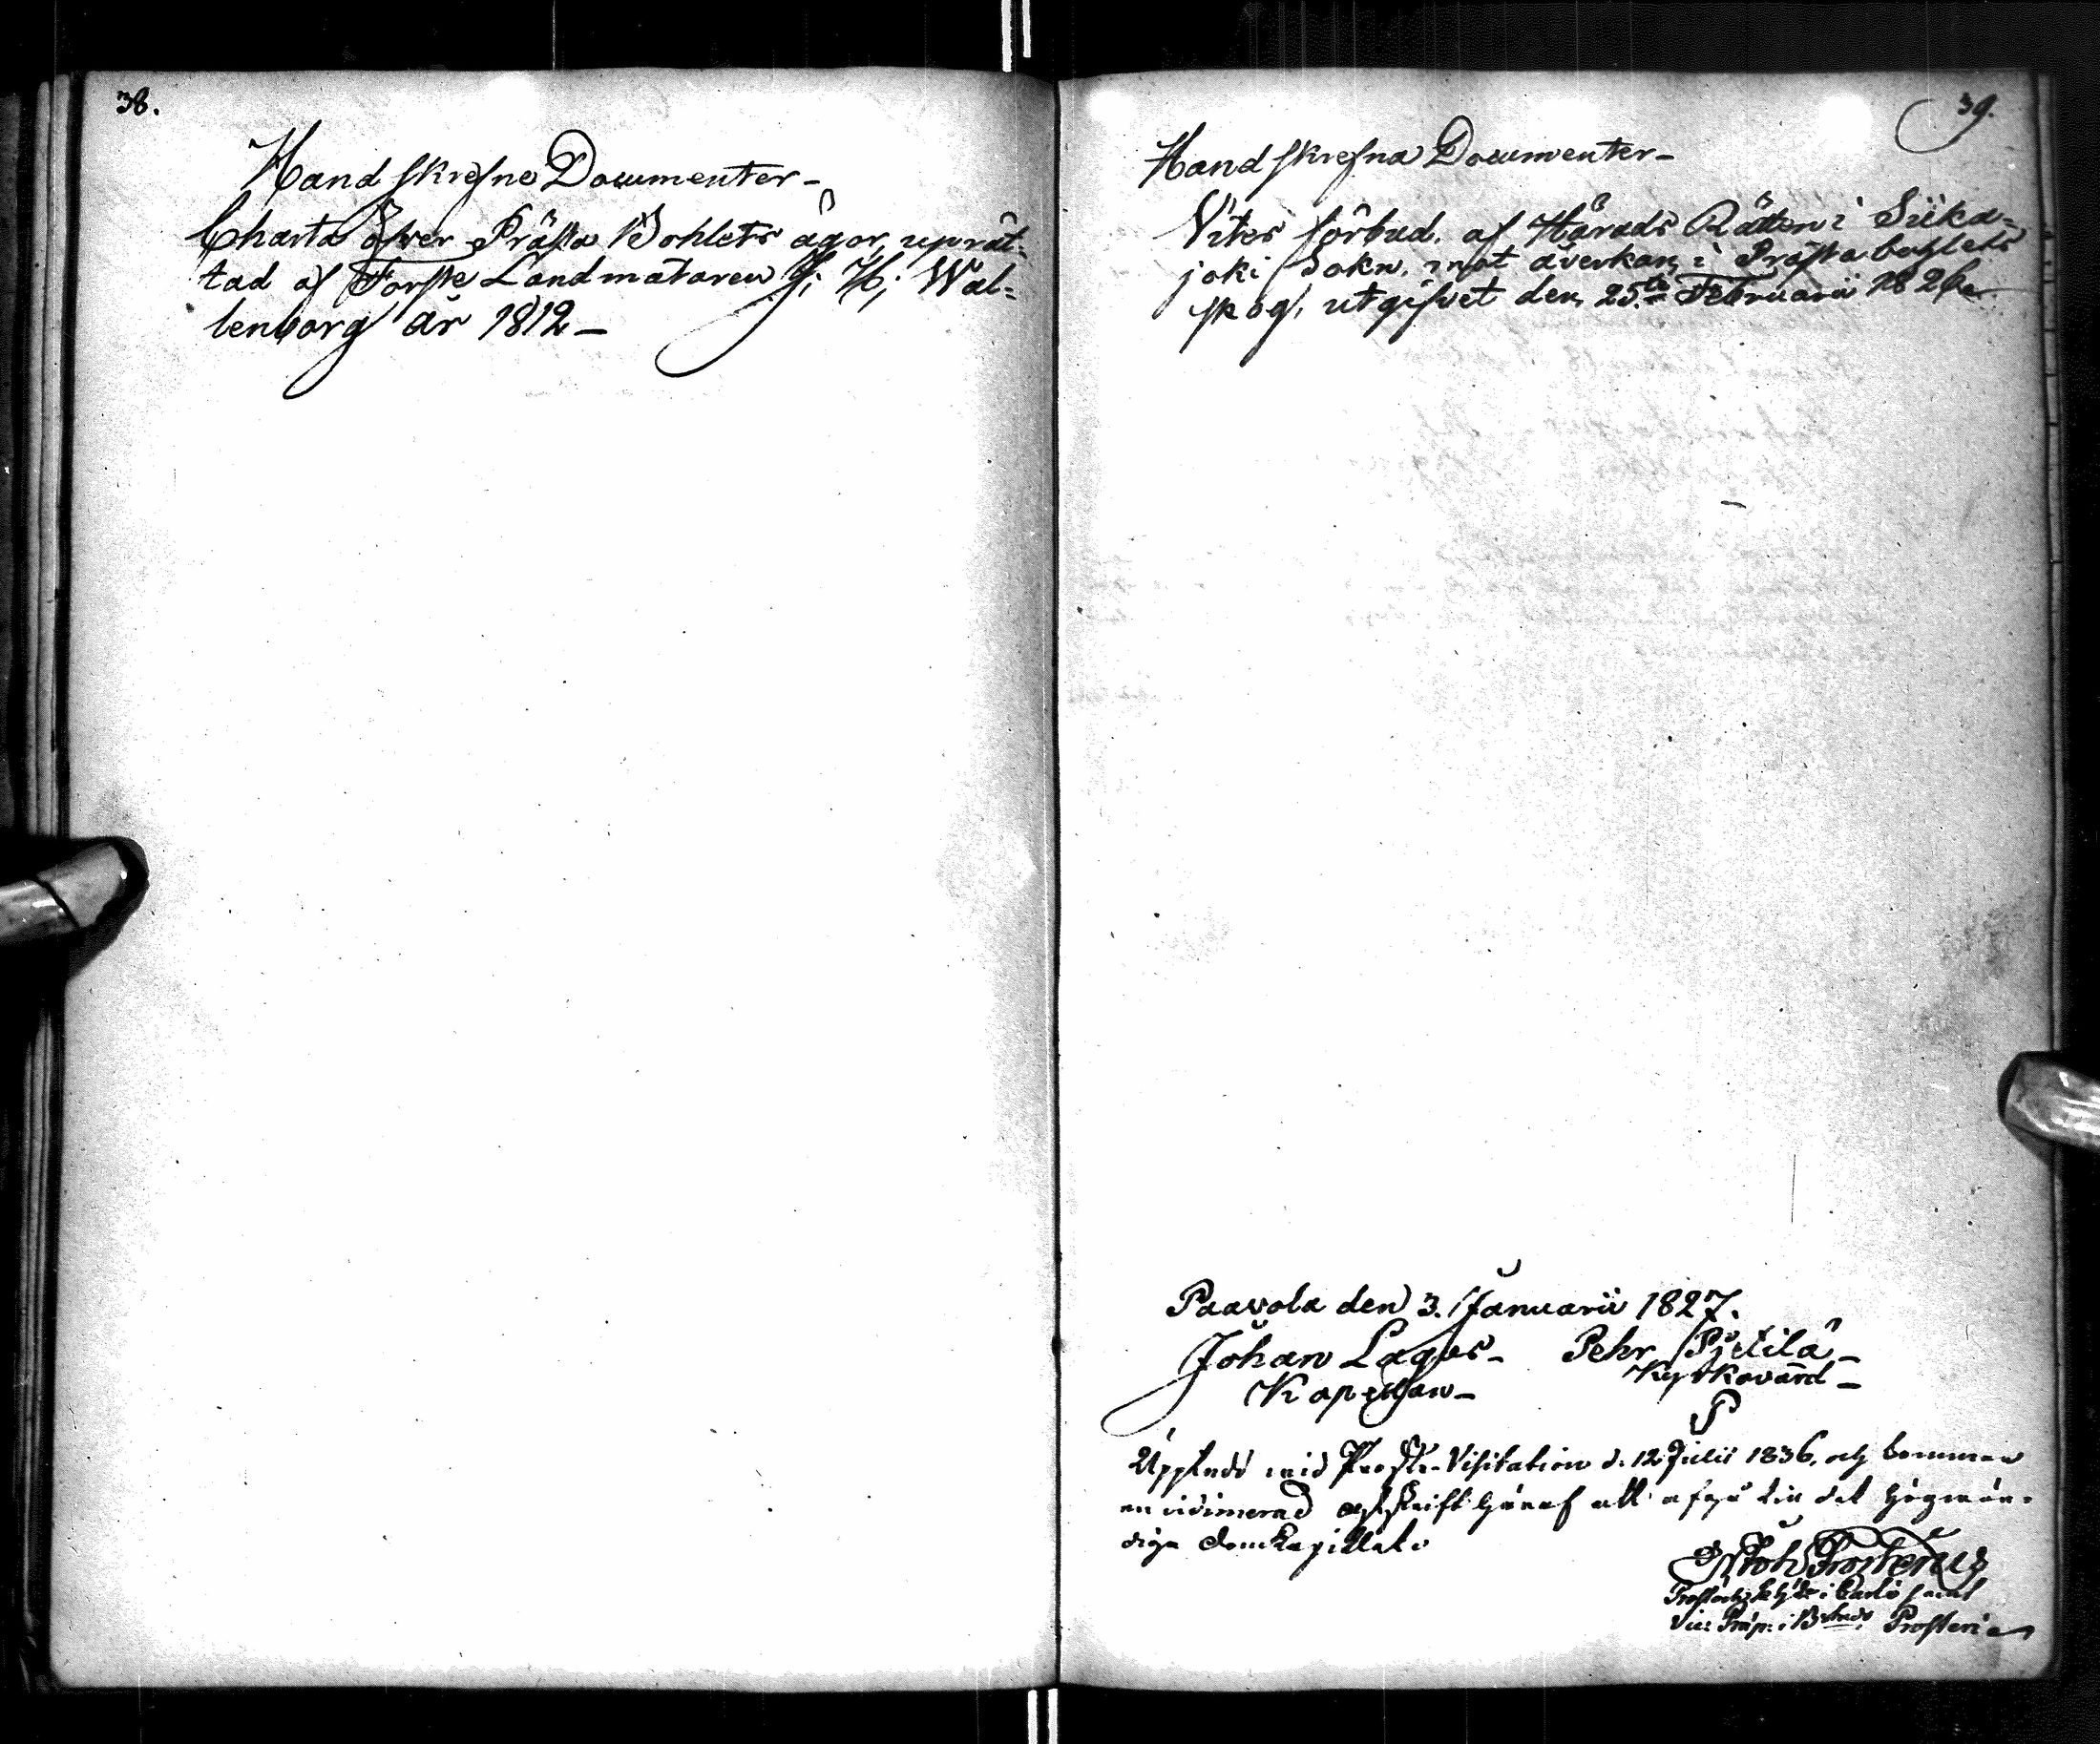 38.
Handskrefne Documenter-
Charta öfver Prästa Bohlets ägor, uprät-
tad af Förste Landmätaren H; Wal-
lenborg år 1812-
39.
Handskrefna Documenter-
Vites förbud. af Härads Rätten i Siika-
joki Sokn, mot åverkan i Prästabohlets
skog, utgifvet den 25te Februarii 1826
Paavola den 3. Januarii 1827.
Johan Lagus- Pehr Pietilä-
Kapellan- Kyrkovärd-
P
Uppläst vid Prosts-Visitation d. 12 Julii 1836, och kommer
en vidimerad afskrift häraf att afgå till det högvör-
diga Domkapitlet.
Joh Frosterus
Prost och Khde i Carlö samt
Vice Præp. i Prosteri